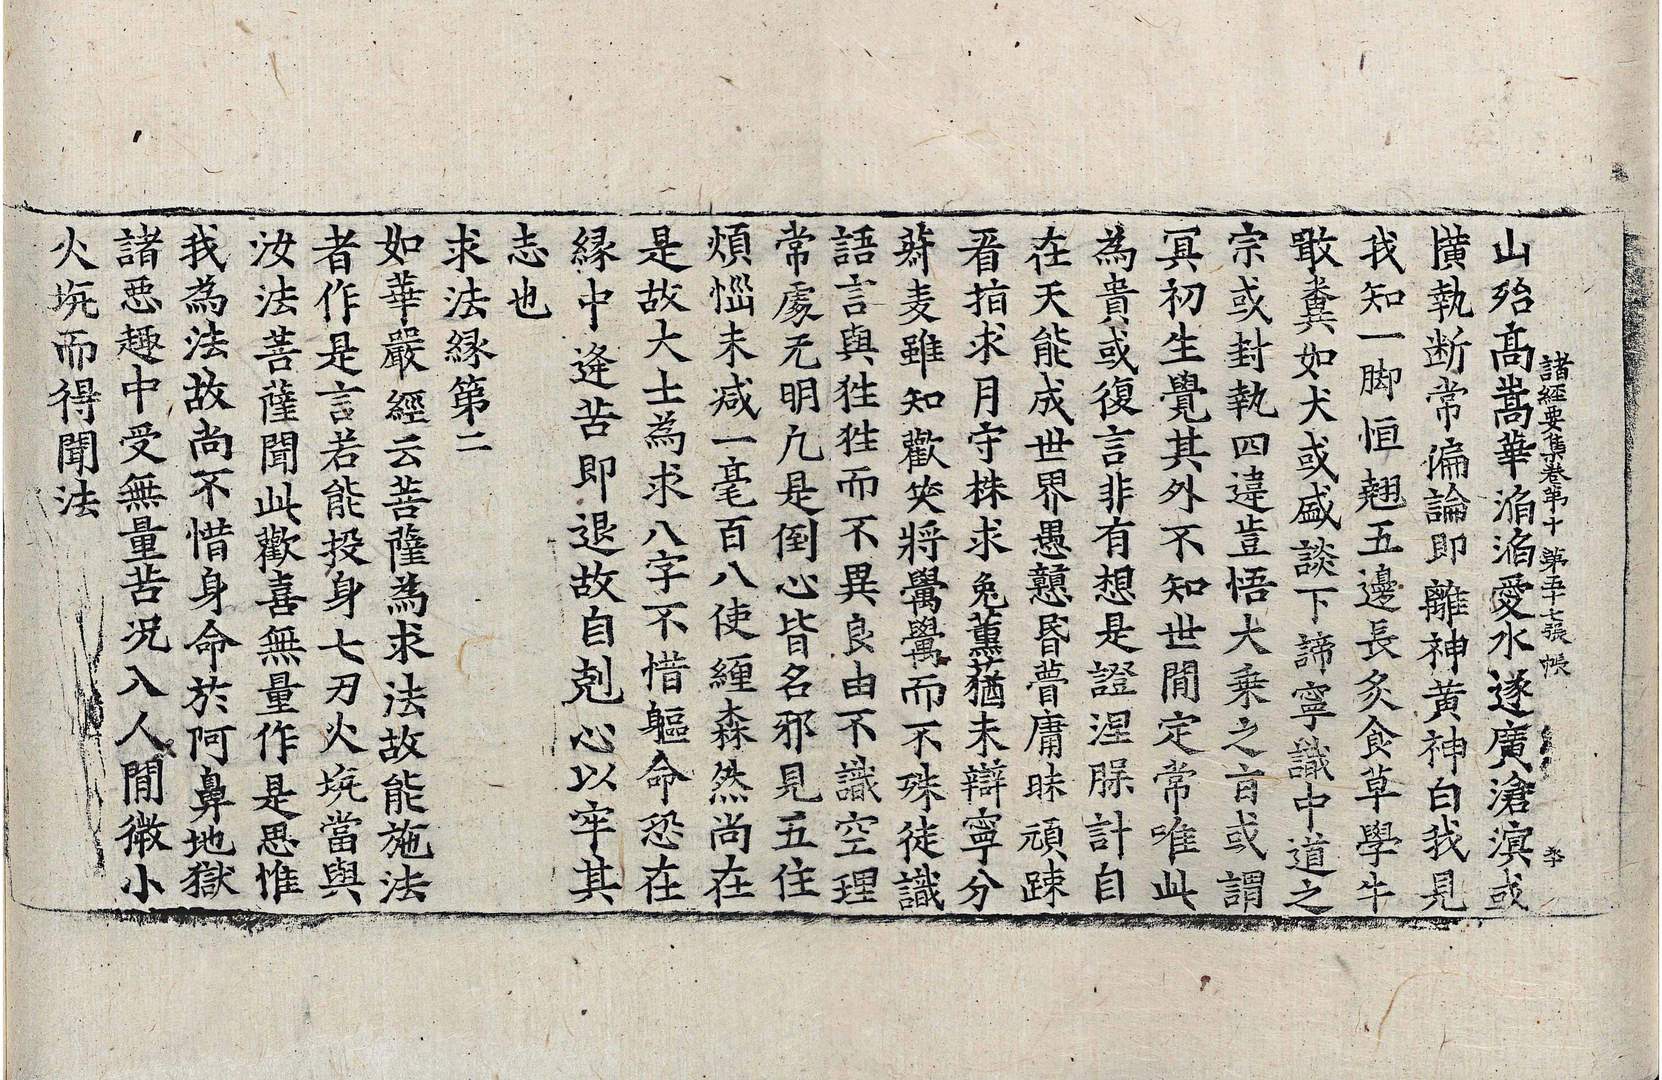 諸經要集卷第十 第五十七張 帳
山殆髙嵩華滔滔愛水遂廣滄溟或
横執断常偏論即離神黄神白我見
我知一脚恒翹五邊長炙食草學牛
噉糞如犬或盛談下諦寧識中道之
宗或封執四違豈悟大乗之旨或謂
冥初生覺其外不知世間定常唯此
為貴或復言非有想是證涅腂計自
在天能成世界愚戇昬瞢庸昧頑踈
看指求月守株求兎薫蕕未辯寧分
菽麦雖知歡笑將䍺䍺而不殊徒識
語言與狌狌而不異良由不識空理
常處无明凢是倒心皆名邪見五住
煩惱未减一毫百八使纒森然尚在
是故大士為求八字不惜軀命恐在
縁中逄苦即退故自剋心以牢其
志也
求法縁第二
如華嚴經云菩薩為求法故能施法
者作是言若能投身七刃火坑當與
汝法菩薩聞此歡喜無量作是思惟
我為法故尚不惜身命於阿鼻地獄
諸惡趣中受無量苦况入人間微小
火坑而得聞法